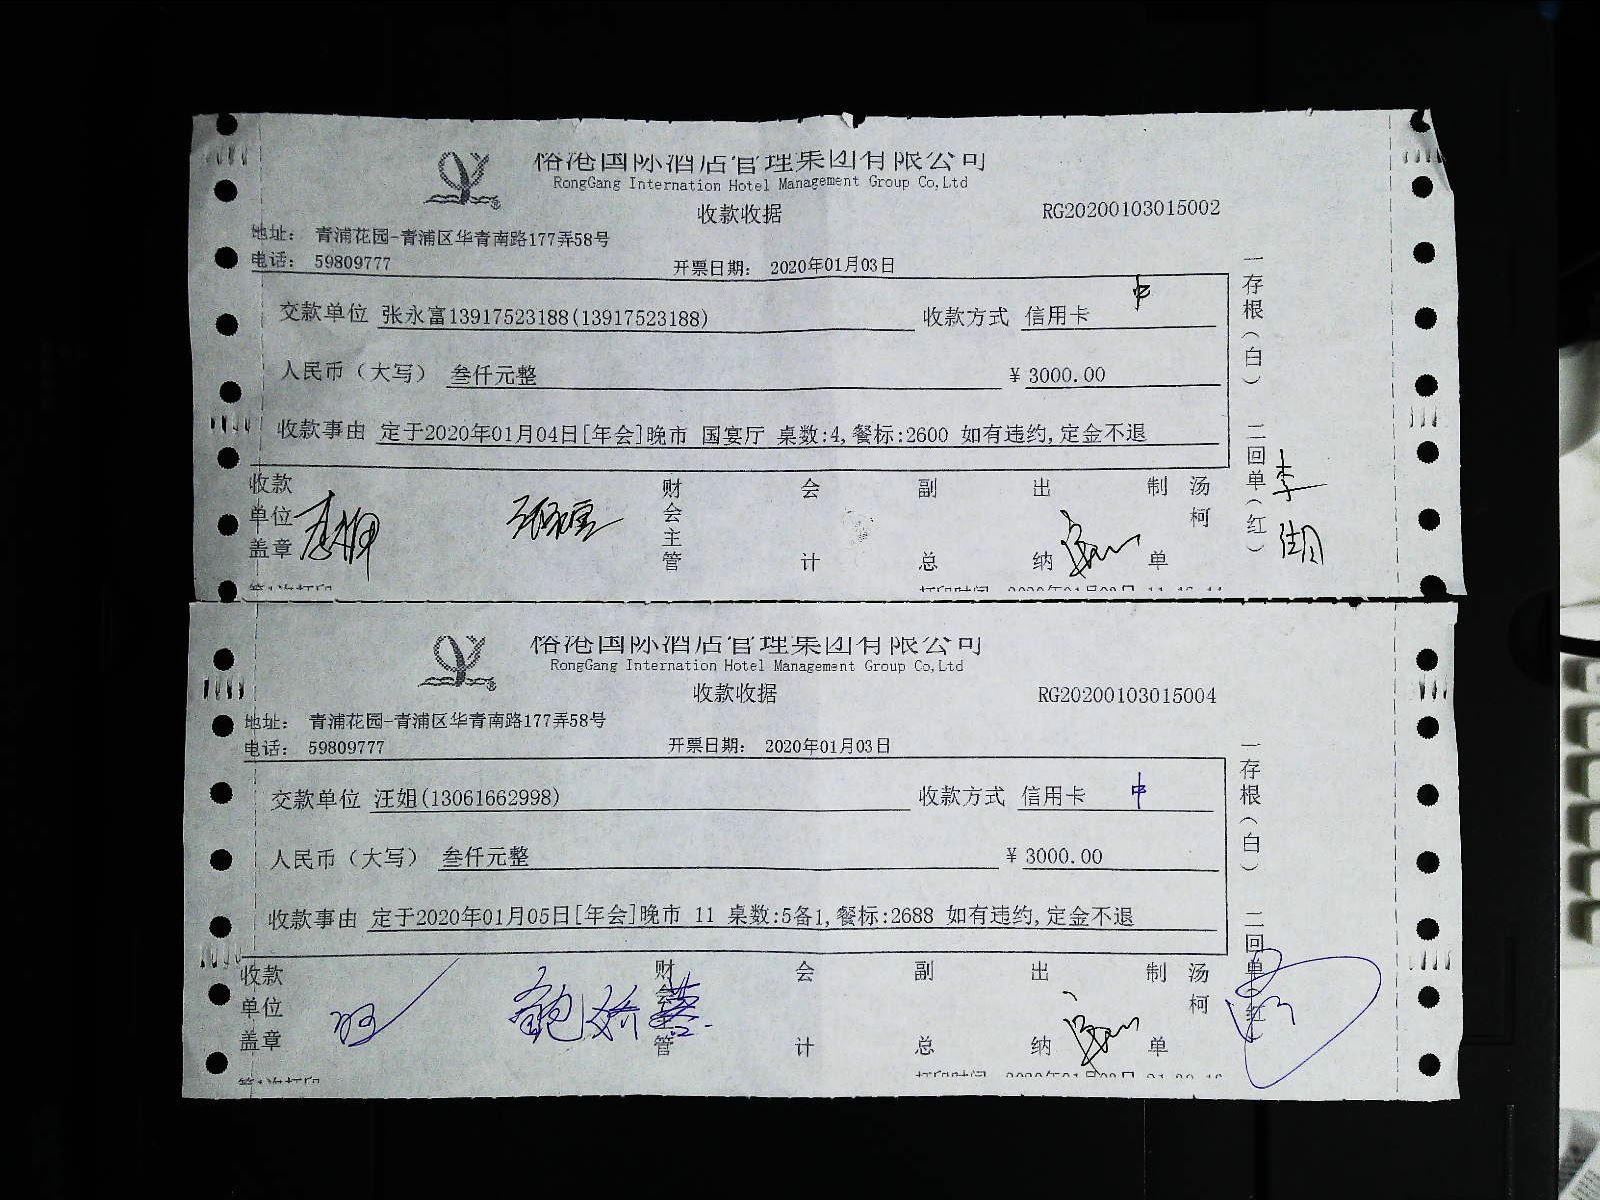 榕港国际酒店管理集团有限公司
RongGang Internation Hotel Management Group Co,Ltd
收款收据 RG20200103015002
地址： 青浦花园-青浦区华青南路177弄58号
电话： 59809777 开票日期： 2020年01月03日
交款单位 张永富13917523188(13917523188) 收款方式 信用卡 中
人民币（大写） 叁仟元整 ¥ 3000.00
收款事由 定于2020年01月04日[年会]晚市 国宴厅 桌数:4,餐标:2600 如有违约,定金不退
一存根（白） 二回单（红）
收款单位盖章 财会主管 会计 副总 出纳 制单 汤柯
第1次打印 打印时间
榕港国际酒店管理集团有限公司
RongGang Internation Hotel Management Group Co,Ltd
收款收据 RG20200103015004
地址： 青浦花园-青浦区华青南路177弄58号
电话： 59809777 开票日期： 2020年01月03日
交款单位 汪姐(13061662998) 收款方式 信用卡 中
人民币（大写） 叁仟元整 ¥ 3000.00
收款事由 定于2020年01月05日[年会]晚市 11 桌数:5备1,餐标:2688 如有违约,定金不退
一存根（白） 二回单（红）
收款单位盖章 财会主管 会计 副总 出纳 制单 汤柯
第1次打印 打印时间